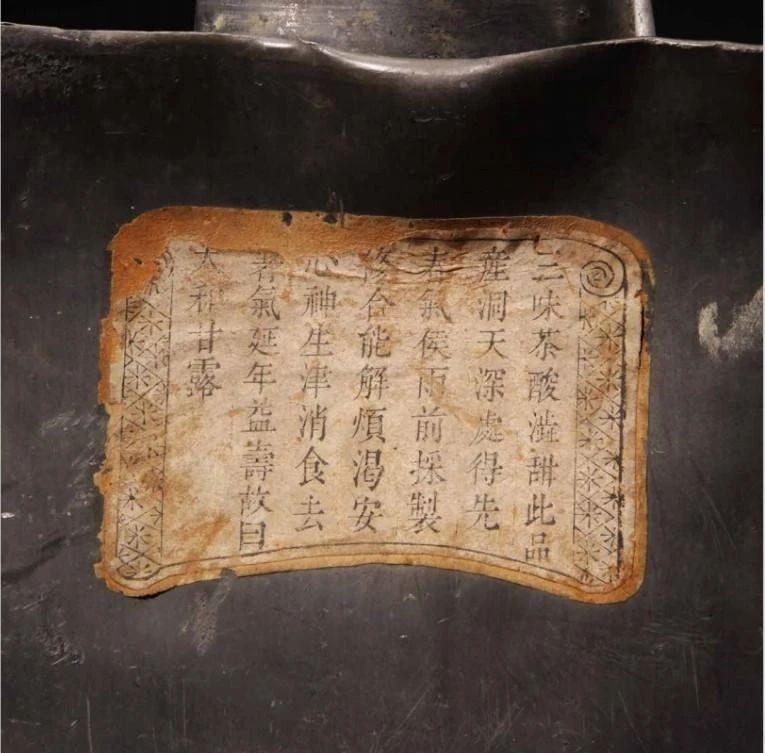 三味茶酸澁甜此品
産洞天深處得先
春氣侯雨前採製
修合能解煩渴安
心神生津消食去
著氣延年益壽故曰
太和甘露